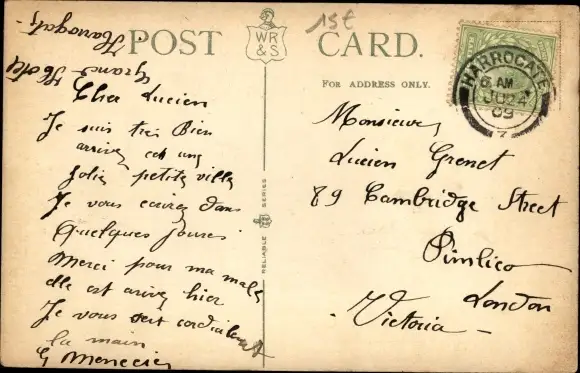 Grand Hotel
Harrogate
15t
POST CARD.
WR
& S
FOR ADDRESS ONLY.
HARROGATE
6 AM
JU 24
09
7
Cher Lucien
Je suis tres Bien
arrivez cet une
Jolie petite ville
Je vous ecirez dans
Quelques Jours
Merci pour ma malle
elle est arivez hier
Je vous sert cordialement
la main
RELIABLE WR&S SERIES
Monsieur
Lucien Grenet
89 Cambridge Street
Pimlico
London
- Victoria -